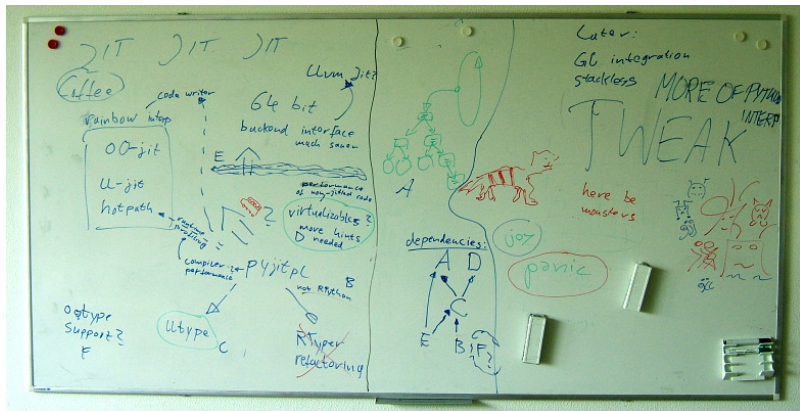 JIT JIT JIT
Coffee
code writer
rainbow interp
OO-jit
ll-jit
hotpath
64 bit
backend interface
llvm jit?
E
performance
of non-jitted code
virtualizables?
more hints
D needed
?
runtime
profiling
compiler
performance
pyjitpl
B
not RPython
ootype
Support?
F
lltype
C
RTyper
refactoring
A
dependencies:
A D
C
E B F?
joy
panic
Later:
GC integration
stackless
MORE OF PYTHON
INTERP
TWEAK
here be
monsters